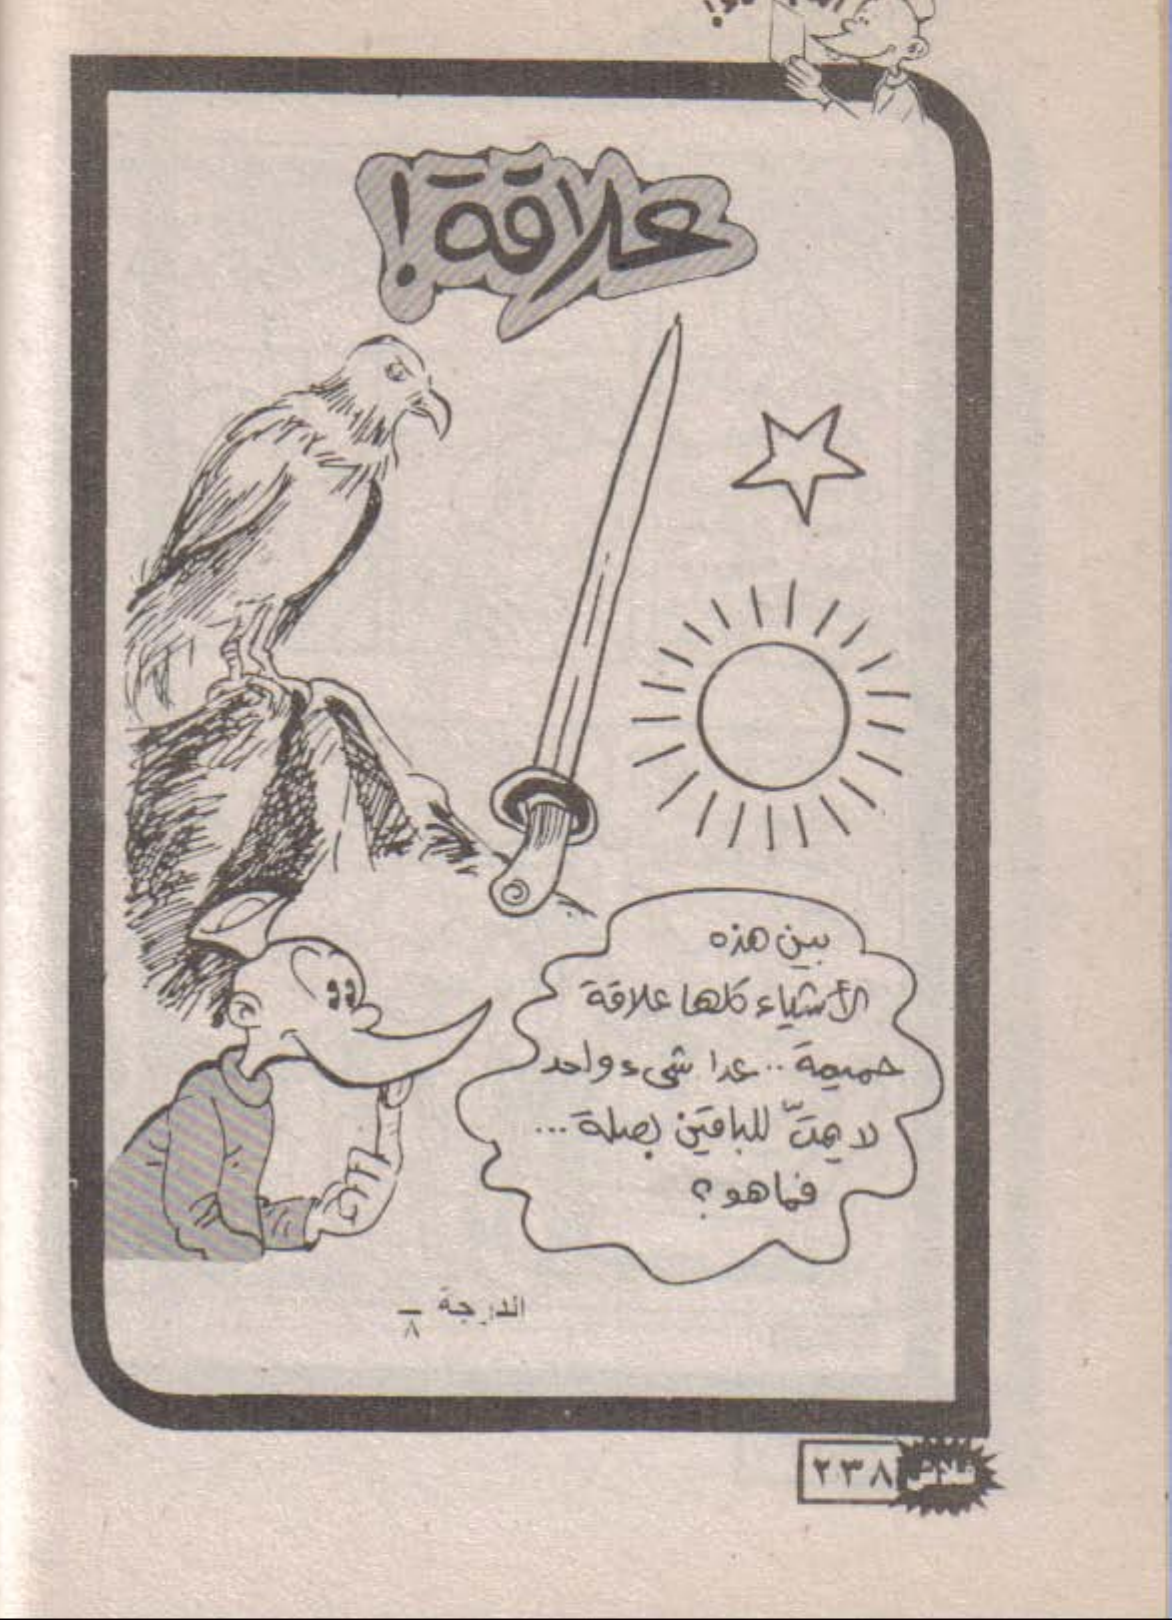 علاقة!
بين هذه
الأشياء كلها علاقة
حميمة .. عدا شيء واحد
لا يمتّ للباقين بصلة ...
فما هو؟
الدرجة ــ
٨
٢٣٨